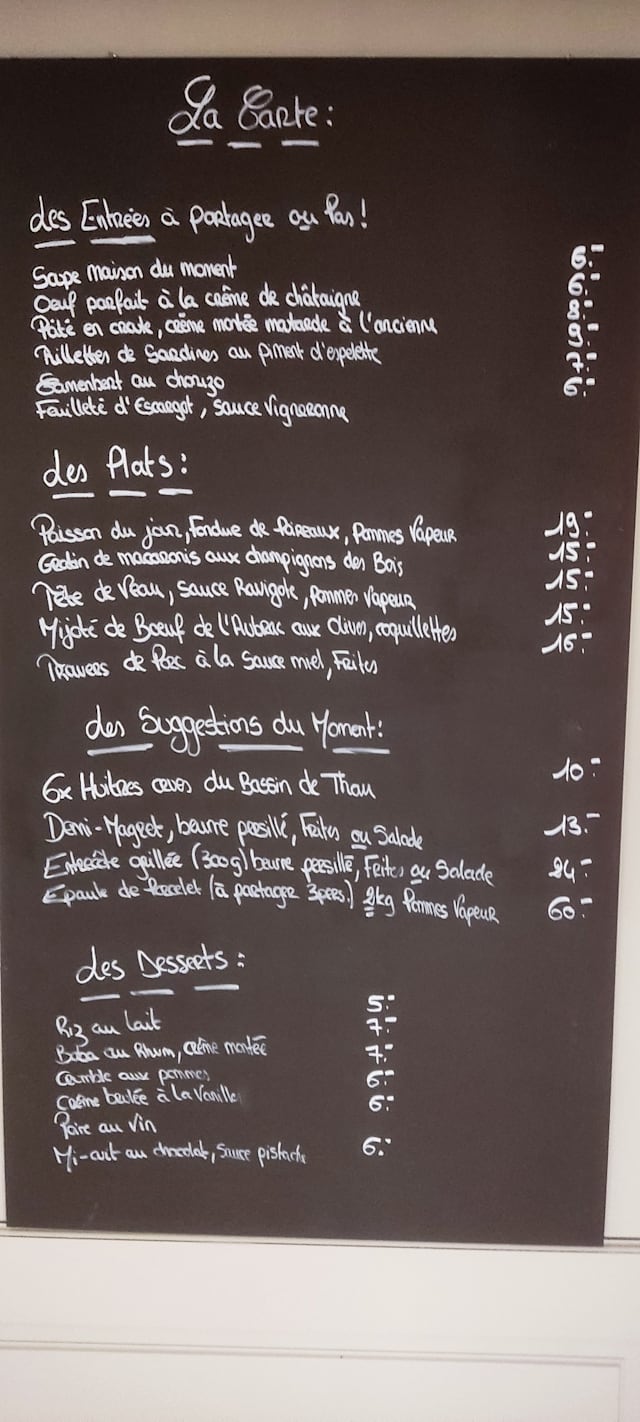 La Carte:
des Entrées à partager ou Pas!
Soupe maison du moment 6.-
Oeuf parfait à la crême de châtaigne 6.-
Pâté en croute, crême montée moutarde à l'ancienne 8.-
Rillettes de Sardines au piment d'espelette 9.-
Camenbert au chorizo 7.-
Feuilleté d'Escargot, Sauce Vigneronne 6.-
des Plats:
Poisson du jour, Fondue de Poireaux, Pommes Vapeur 19.-
Gratin de macaronis aux champignons des Bois 15.-
Tête de Veau, Sauce Ravigote, Pommes Vapeur 15.-
Mijoté de Boeuf de l'Aubrac aux Olives, coquillettes 15.-
Travers de Porc à la Sauce miel, Frites 16.-
des Suggestions du Moment:
6x Huitres creuses du Bassin de Thau 10.-
Demi-Magret, beurre persillé, Frites ou Salade 13.-
Entrecôte grillée (300g) beurre persillé, Frites ou Salade 24.-
Epaule de Porcelet (à partager 3pers.) 2kg Pommes Vapeur 60.-
des Desserts:
Riz au lait 5.-
Baba au Rhum, crême montée 7.-
Crumble aux pommes 7.-
Crême brulée à la Vanille 6.-
Poire au Vin 6.-
Mi-cuit au chocolat, Sauce pistache 6.-